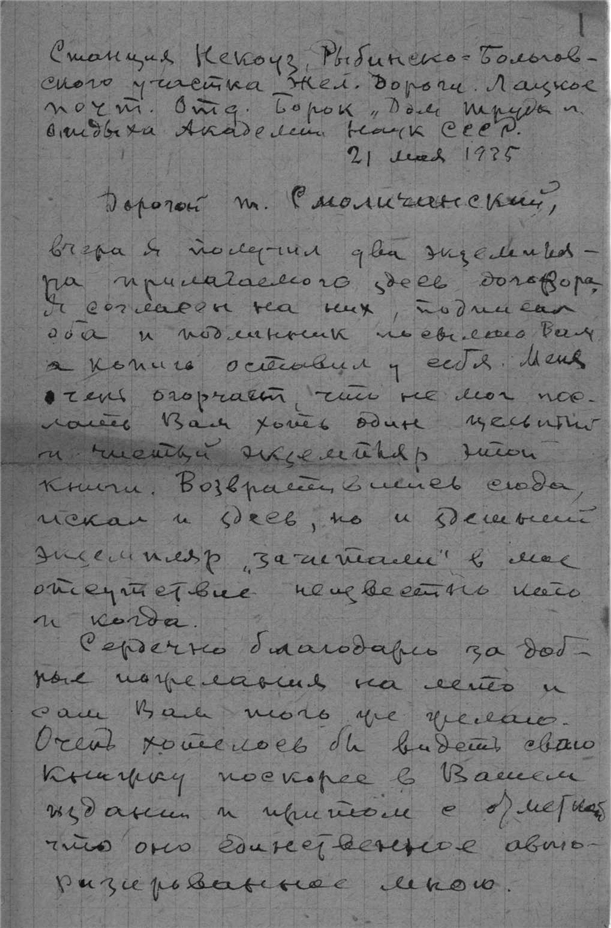 1
Станция Некоуз, Рыбинско-Бологов-
ского участка Жел. Дороги. Лацкое
почт. Отд. Борок „Дом труда и
отдыха Академии Наук СССР.
21 мая 1935
Дорогой т. Смоличинский,
вчера я получил два экземпля-
ра прилагаемого здесь договора,
я согласен на них, подписал
оба и подлинник посылаю Вам
а копию оставил у себя. Меня
очень огорчает, что не мог пос-
лать Вам хоть один цельный
и чистый экземпляр этой
книги. Возвратившись сюда,
искал и здесь, но и здешний
экземпляр „зачитали" в мое
отсутствие неизвестно кто
и когда.
Сердечно благодарю за доб-
рые пожелания на лето и
сам Вам того же желаю.
Очень хотелось бы видеть свою
книжку поскорее в Вашем
издании и притом с отметкой
что оно единственное авто-
ризированное мною.